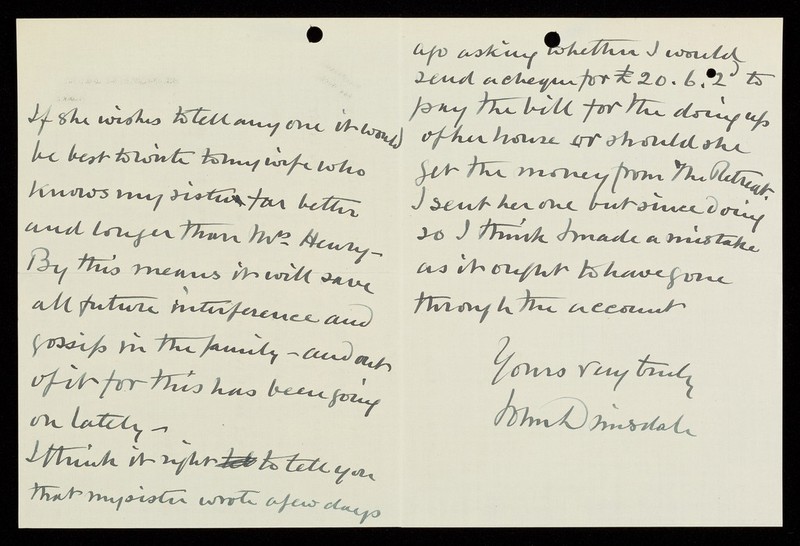 If she wishes to tell any one it would
be best to write to my wife who
knows my sister far better
and longer than Mrs Henry –
By this means it will save
all future interference and
gossip in the family – and out
of it for this has been going
on lately –
I think it right to tell you
that my sister wrote a few days
ago asking whether I would
send a cheque for £20.6.2 to
pay the bill for the doing up
of her house or should she
get the money from The Retreat.
I sent her one but since doing
so I think I made a mistake
as it ought to have gone
through the account
Yours very truly
John Dinsdale